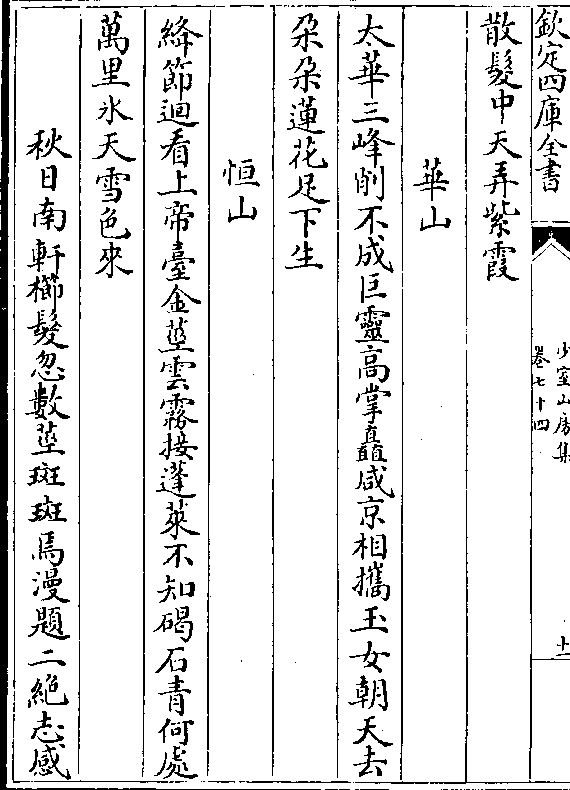 欽定四庫全書
少室山房集
卷七十四
十一
散髮中天弄紫霞
華山
太華三峰削不成巨靈高掌矗咸京相攜玉女朝天去
朶朶蓮花足下生
恒山
絳節迴看上帝臺金莖雲霧接蓬萊不知碣石青何處
萬里氷天雪色來
秋日南軒櫛髮忽數莖斑斑焉漫題二絕志感